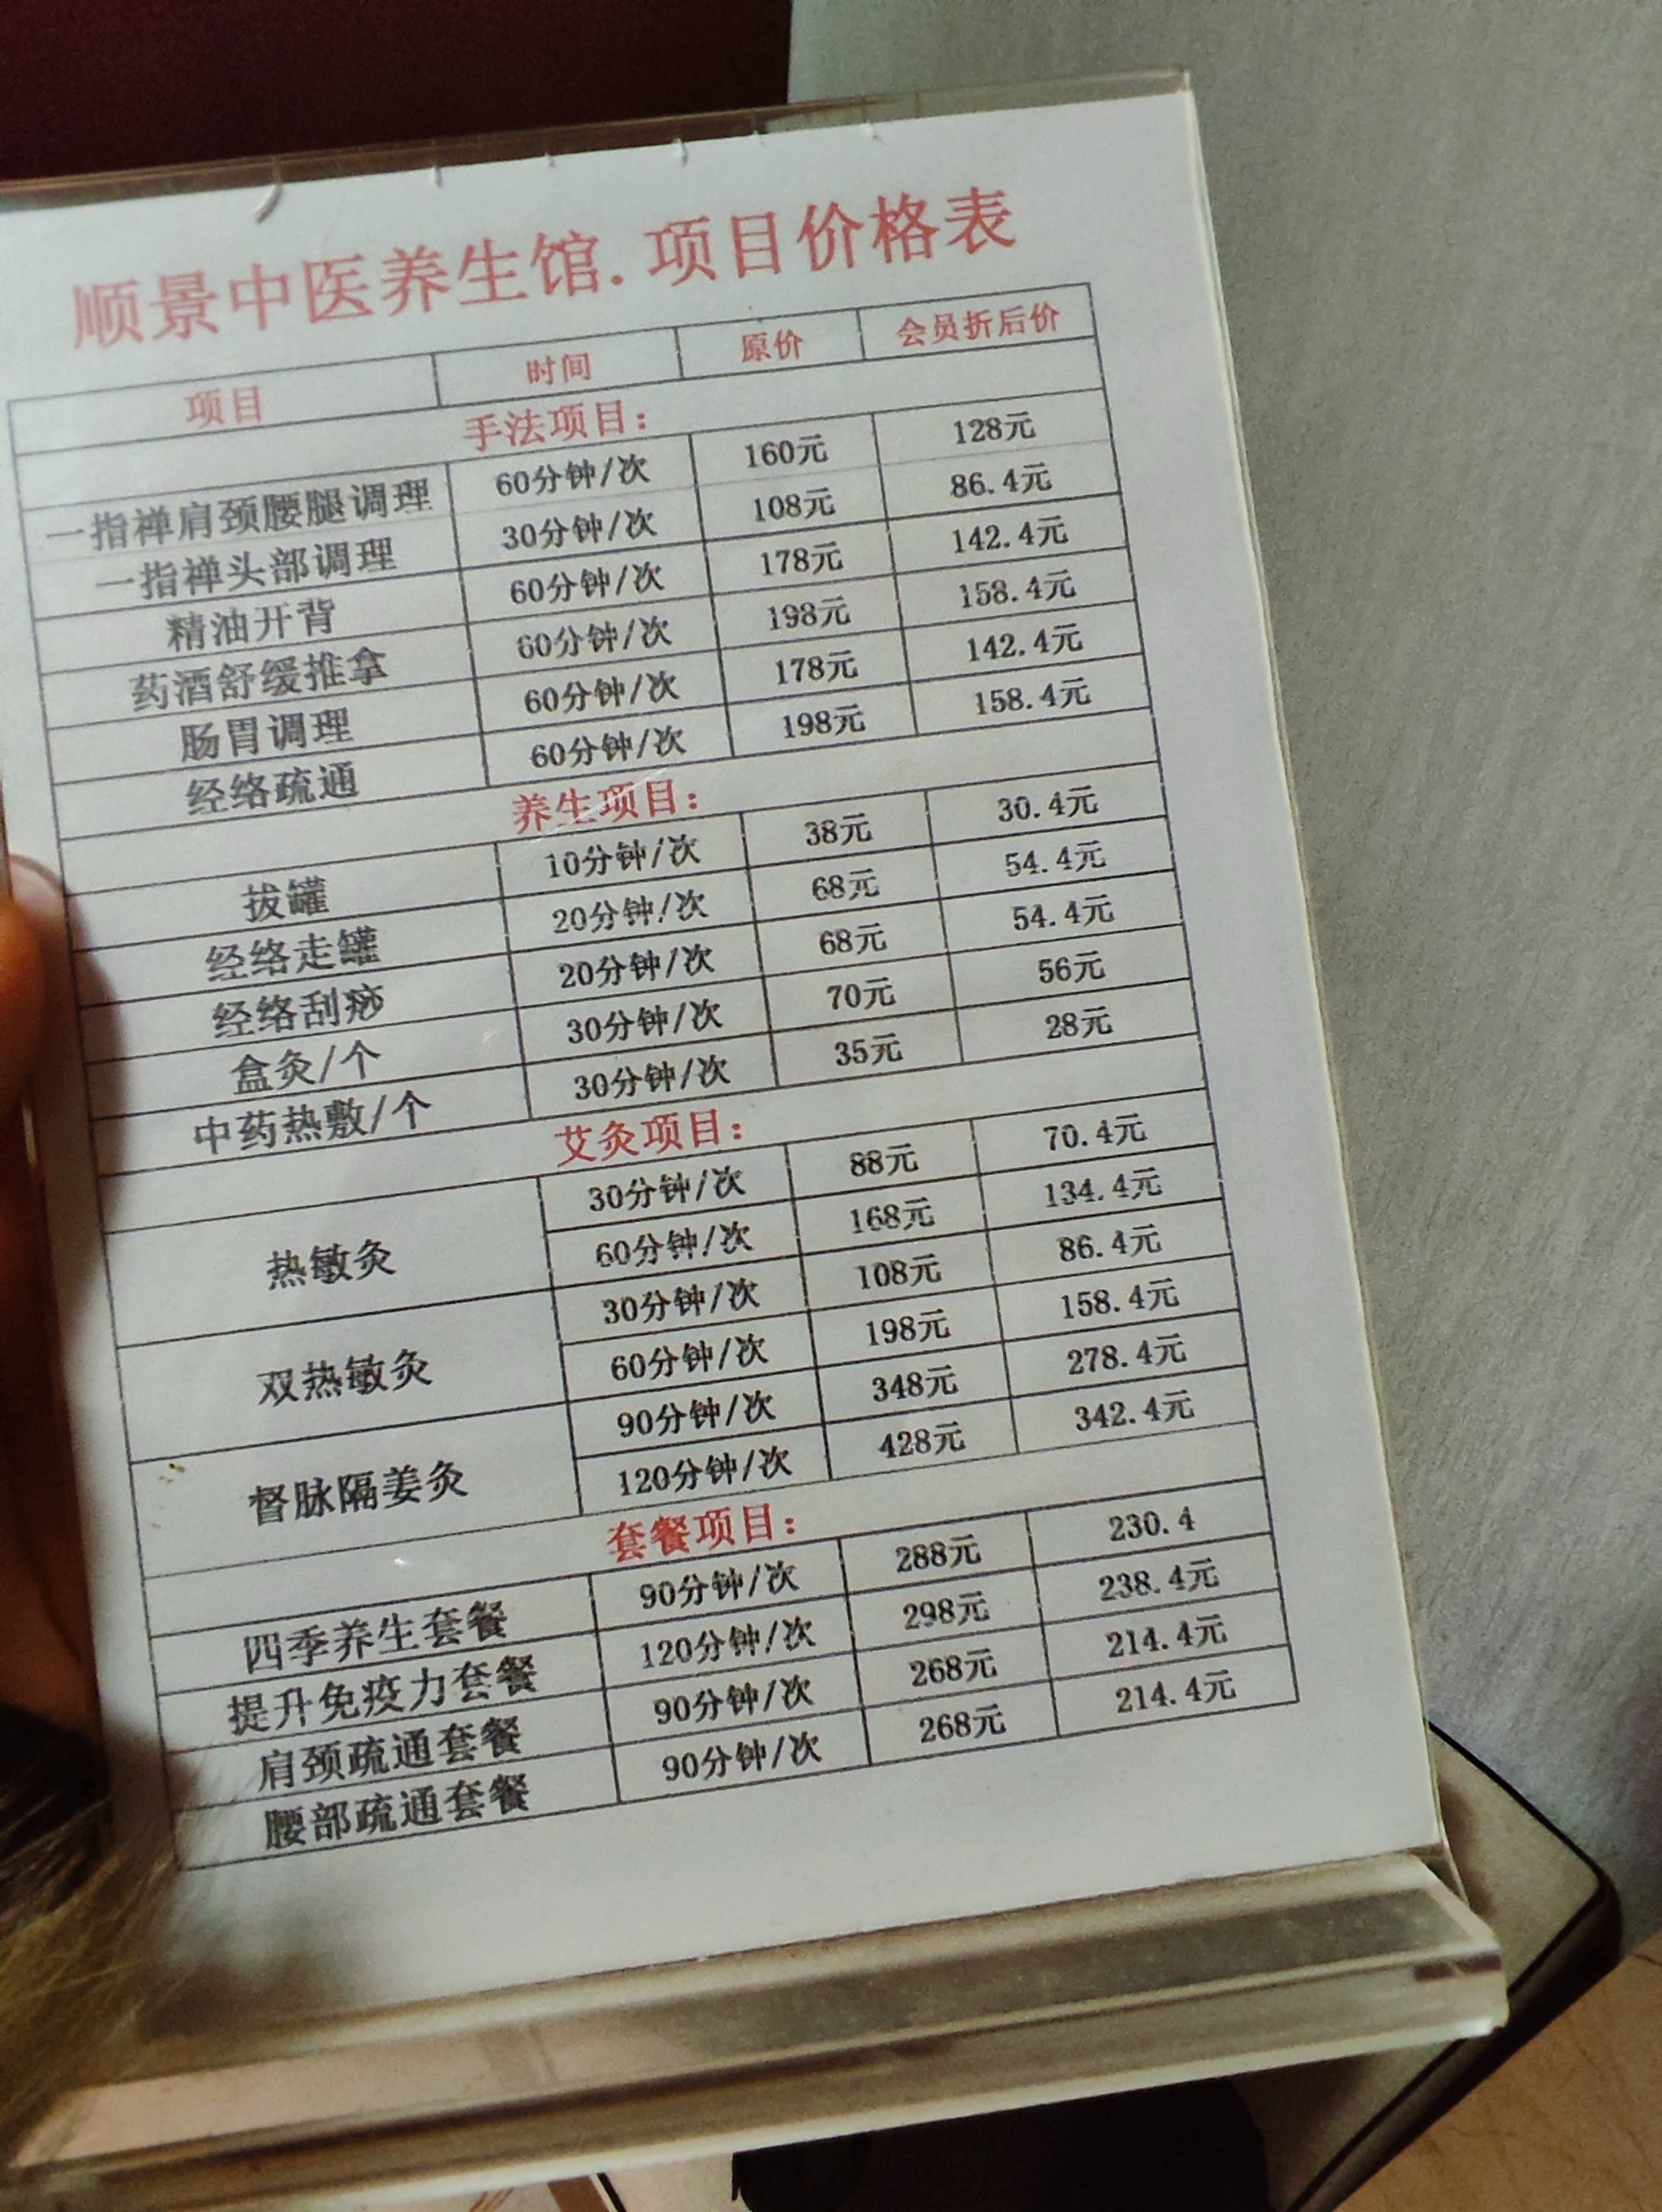 顺景中医养生馆.项目价格表
项目 时间 原价 会员折后价
手法项目：
一指禅肩颈腰腿调理 60分钟/次 160元 128元
一指禅头部调理 30分钟/次 108元 86.4元
精油开背 60分钟/次 178元 142.4元
药酒舒缓推拿 60分钟/次 198元 158.4元
肠胃调理 60分钟/次 178元 142.4元
经络疏通 60分钟/次 198元 158.4元
养生项目：
拔罐 10分钟/次 38元 30.4元
经络走罐 20分钟/次 68元 54.4元
经络刮痧 20分钟/次 68元 54.4元
盒灸/个 30分钟/次 70元 56元
中药热敷/个 30分钟/次 35元 28元
艾灸项目：
热敏灸 30分钟/次 88元 70.4元
60分钟/次 168元 134.4元
双热敏灸 30分钟/次 108元 86.4元
60分钟/次 198元 158.4元
督脉隔姜灸 90分钟/次 348元 278.4元
120分钟/次 428元 342.4元
套餐项目：
四季养生套餐 90分钟/次 288元 230.4
提升免疫力套餐 120分钟/次 298元 238.4元
肩颈疏通套餐 90分钟/次 268元 214.4元
腰部疏通套餐 90分钟/次 268元 214.4元